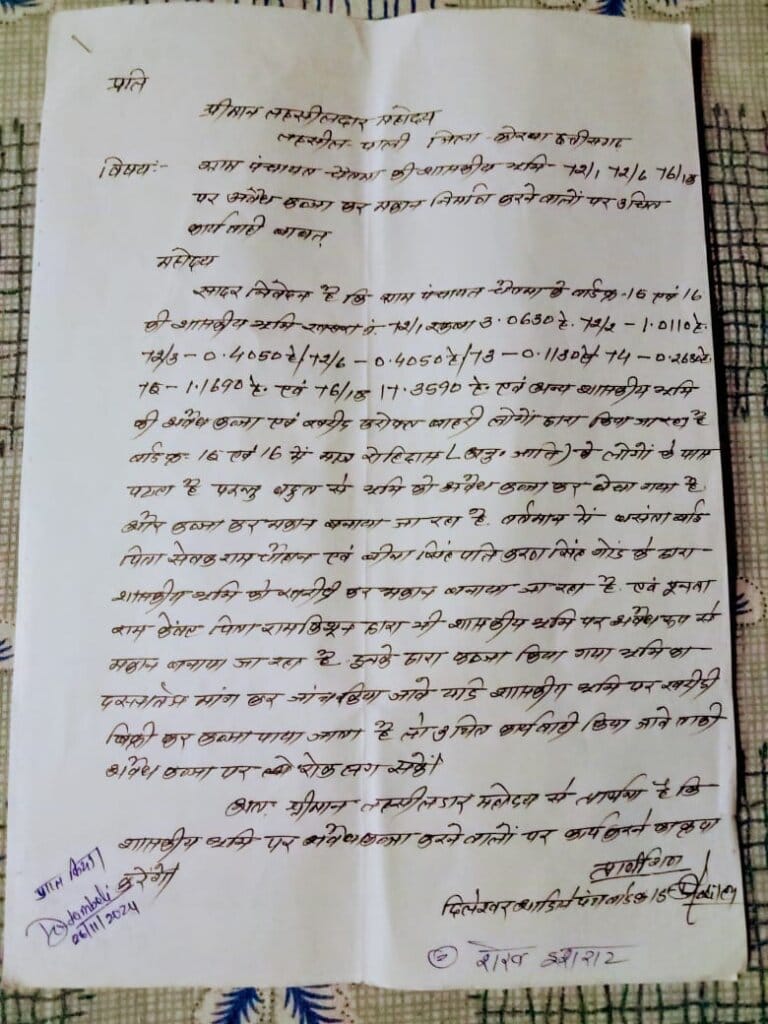 प्रति
श्रीमान तहसीलदार महोदय
तहसील पाली जिला - कोरबा छत्तीसगढ
विषय:- ग्राम पंचायत चैतमा की शासकीय भूमि 72/1 72/6 76/1क
पर अवैध कब्जा कर मकान निर्माण करने वालों पर उचित
कार्यवाही बाबत्
महोदय
सादर निवेदन है कि ग्राम पंचायत चैतमा के वार्ड क्र. 15 एवं 16
की शासकीय भूमि खसरा नं. 72/1 रकबा 3.0630 हे. 72/2 - 1.0110 हे.
72/3 - 0.4050 हे/72/6 - 0.4050 हे/73 - 0.1130 हे/ 74 - 0.2630 हे.
75 - 1.1690 हे. एवं 76/1क 17.3590 हे. एवं अन्य शासकीय भूमि
की अवैध कब्जा एवं खरीद फरोक्त बाहरी लोगों द्वारा किया जा रहा है
वार्ड क्र. 15 एवं 16 में मात्र रोहिदास (अनु. जाति) के लोगों के पास
पट्टा है परन्तु बहुत से भूमि को अवैध कब्जा कर बेचा गया है
और कब्जा कर मकान बनाया जा रहा है. वर्तमान में बसंता बाई
पिता सेवक राम चौहान एवं बीना सिंह पति करण सिंह गोंड के द्वारा
शासकीय भूमि को खरीदी कर मकान बनाया जा रहा है. एवं
राम केंवट पिता रामकिशुन द्वारा भी शासकीय भूमि पर अवैध रूप से
मकान बनाया जा रहा है. इनके द्वारा कब्जा किया गया भूमि का
दस्तावेज मांग कर जांच किया जावे यदि शासकीय भूमि पर खरीदी
बिक्री कर कब्जा पाया जाता है तो उचित कार्यवाही किया जावे ताकी
अवैध कब्जा पर रोक लग सकें।
अतः श्रीमान तहसीलदार महोदय से प्रार्थना है कि
शासकीय भूमि पर अवैध कब्जा करने वालों पर कार्य करने का कृपा
करेंगे।
प्राप्त किया।
06/11/2024
प्रार्थीगण
दिलेश्वर आदिले पंच वार्ड क्र 15
② शेख इशराट